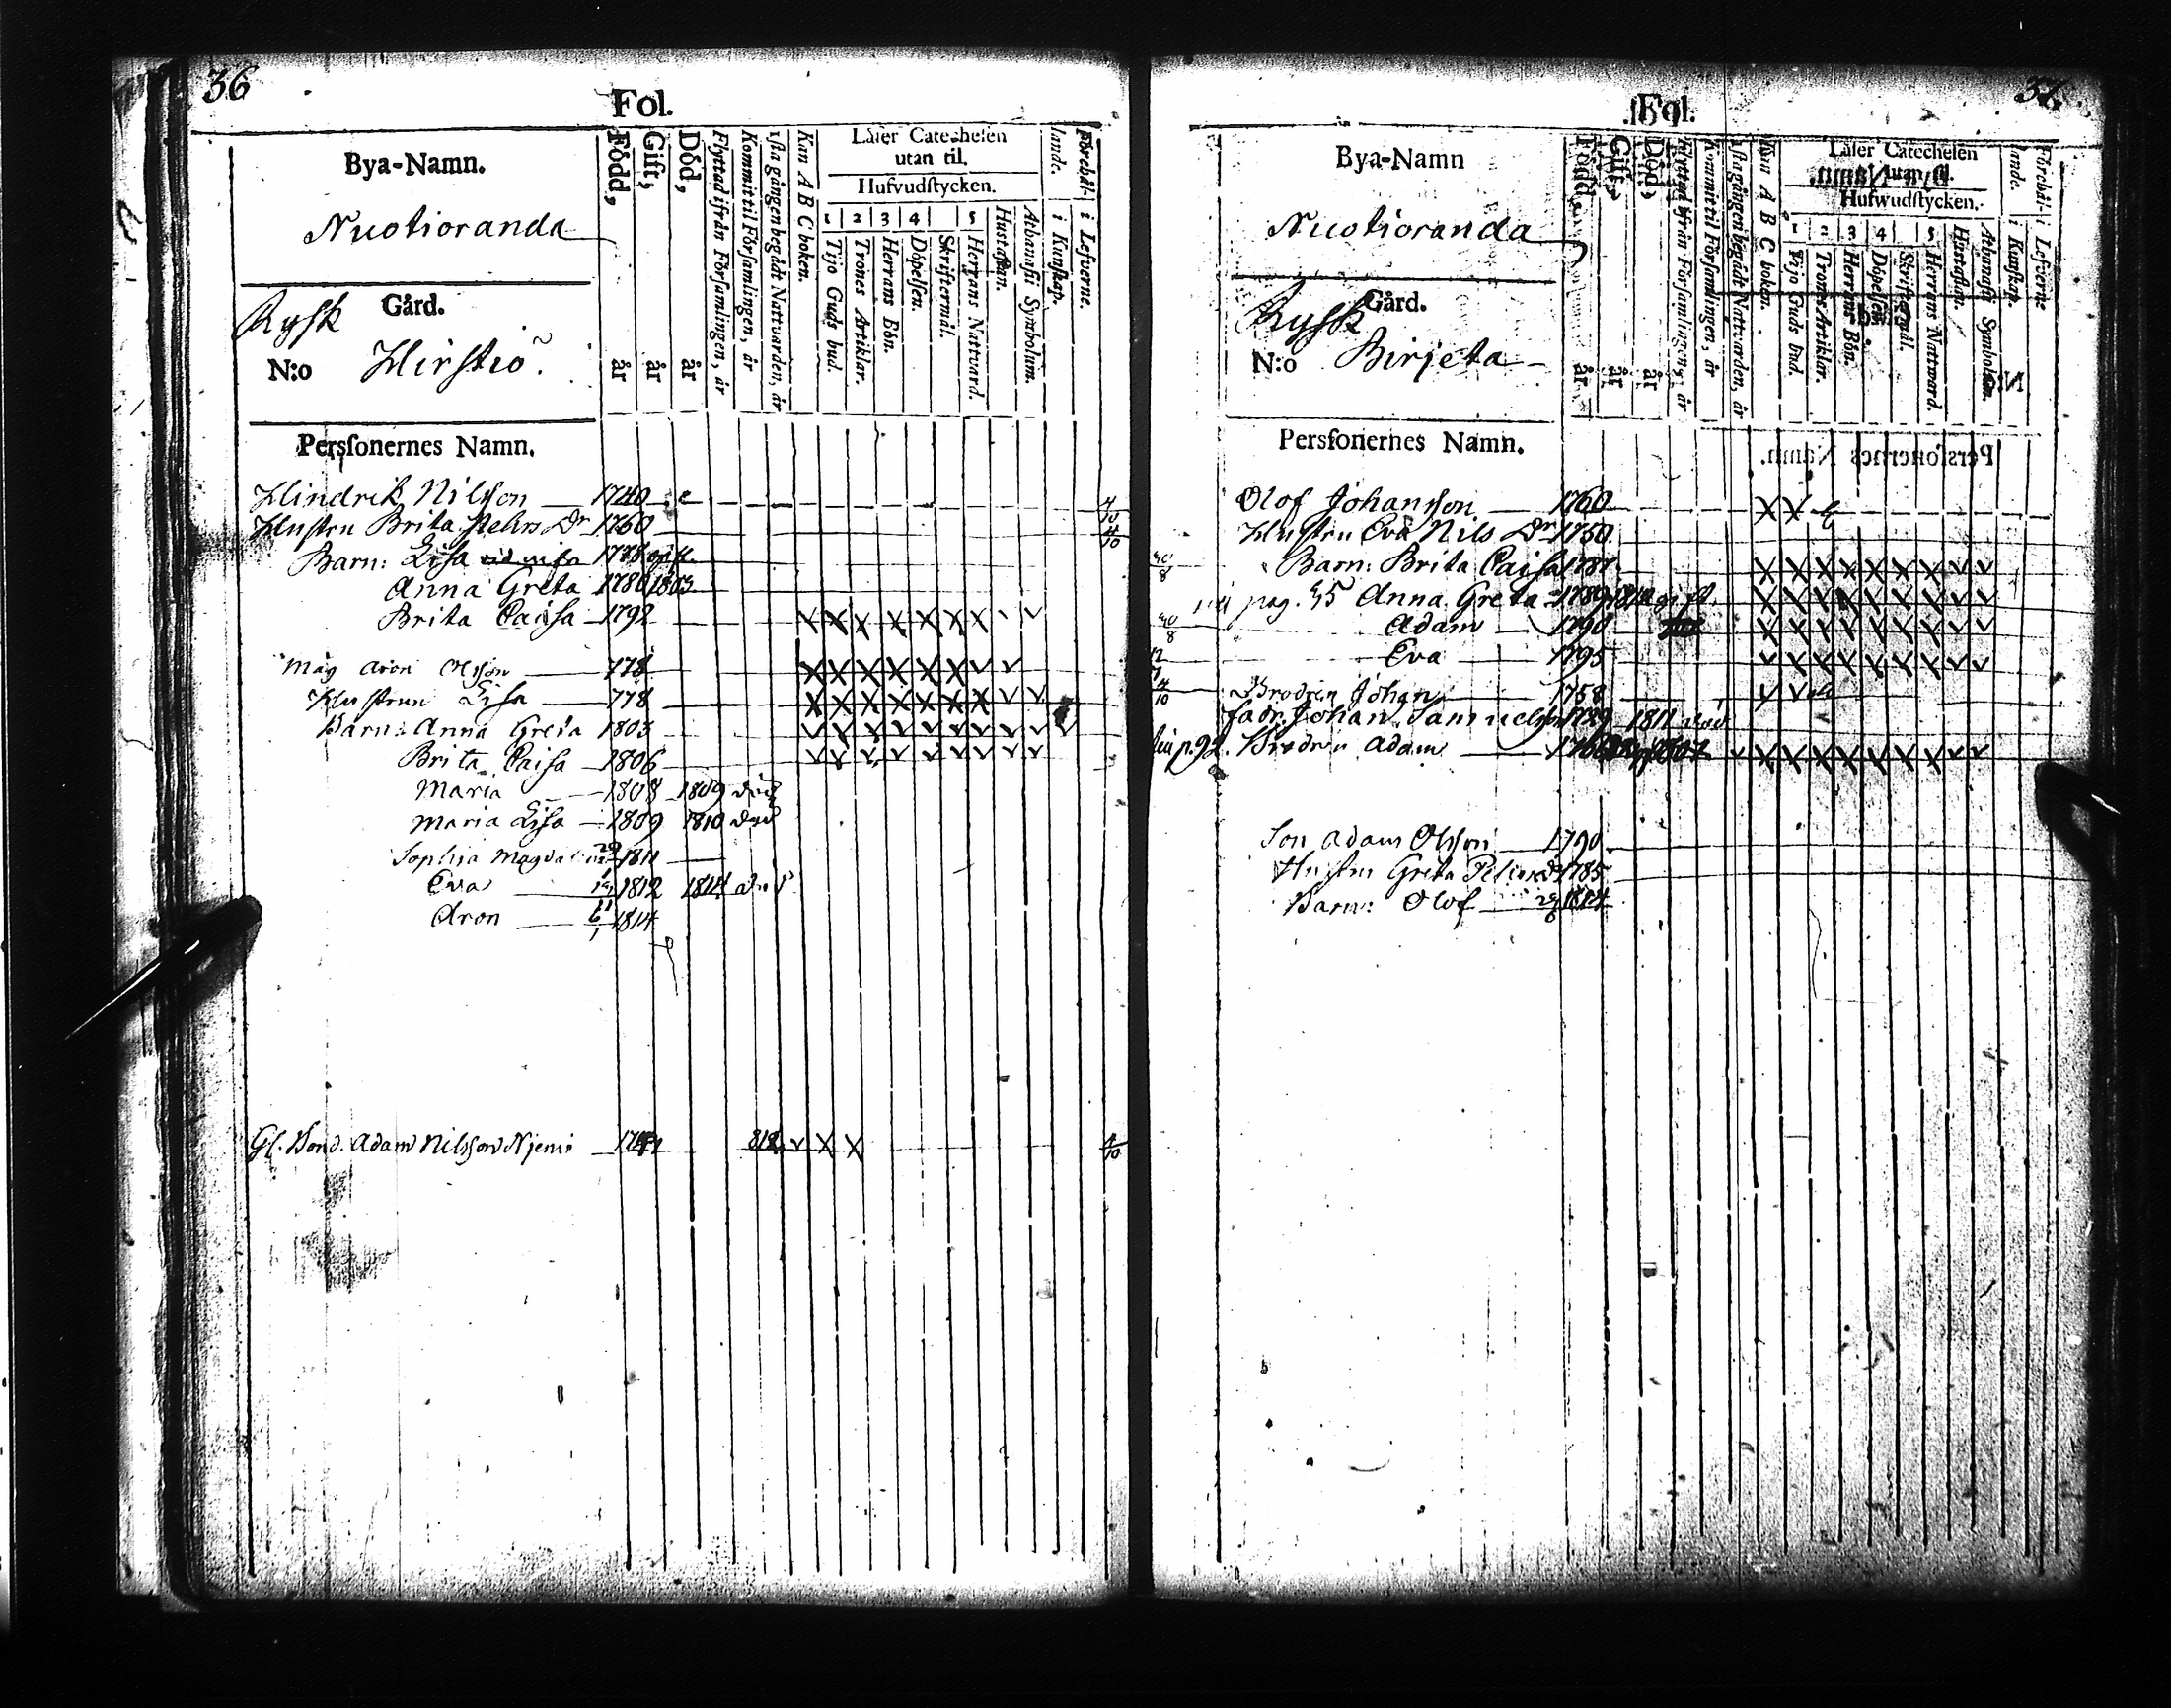 36
Fol.
Bya-Namn.
Nuotioranda
Rysk
Gård.
N:o Hirstiö.
Född, år
Gift, år
Död, år
Flyttad ifrån Församlingen, år
Kommit til Församlingen, år
1sta gången begådt Nattvarden, år
Kan A B C boken.
Läser Catechesen
utan til.
Hufvudstycken.
1 2 3 4 5
Tijo Guds bud.
Trones Artiklar.
Herrans Bön.
Döpelsen.
Skriftermål.
Herrans Nattvard.
Hustaflan.
Athanasii Symbolum.
Förehållande.
i Kunskap.
i Lefverne.
Perssonernes Namn.
Hindrik Nilsson 1740
Hustru Brita Pehrs Dr 1760
Barn: Lisa 1778 gift
Anna Greta 1786 1803
Brita Caisa 1792
Måg Aron Olsson 778
Hustrun Lisa 778
Barn: Anna Greta 1803
Brita Caisa 1806
Maria 1808 1809 död
Maria Lisa 1809 1810 död
Sophia Magdalena 1811
Eva 1812 1814 död
Aron 1814
Gl. Bond. Adam Nilsson Njemi 812
37.
Fol.
Bya-Namn
Nuotioranda
Rysk
Gård.
N:o Birjeta
Född, år
Gift, år
Död, år
Flyttad ifrån Församlingen, år
Kommit til Församlingen, år
1sta gången begådt Nattvarden, år
Kan A B C boken.
Läser Catechesen
utan til.
Hufwudstycken.
1 2 3 4 5
Tijo Guds bud.
Trones Artiklar.
Herrans Bön.
Döpelsen.
Skriftermål.
Herrans Nattward.
Hustaflan.
Athanasii Symbolum.
Förehållande.
i Kunskap.
i Lefverne
Persfonernes Namn.
Olof Johansson 1760
Hustru Eva Nils Dr 1750
Barn: Brita Caisa 1787
pag. 35 Anna Greta 1789 gift.
Adam 1790
Eva 1795
Brodren Johan 1758
fadr. Johan Samuelsson 1729 1811 död
p. 92. Brodren Adam
Son Adam Olsson 1790
Hustru Greta 1785
Barn: Olof 1814